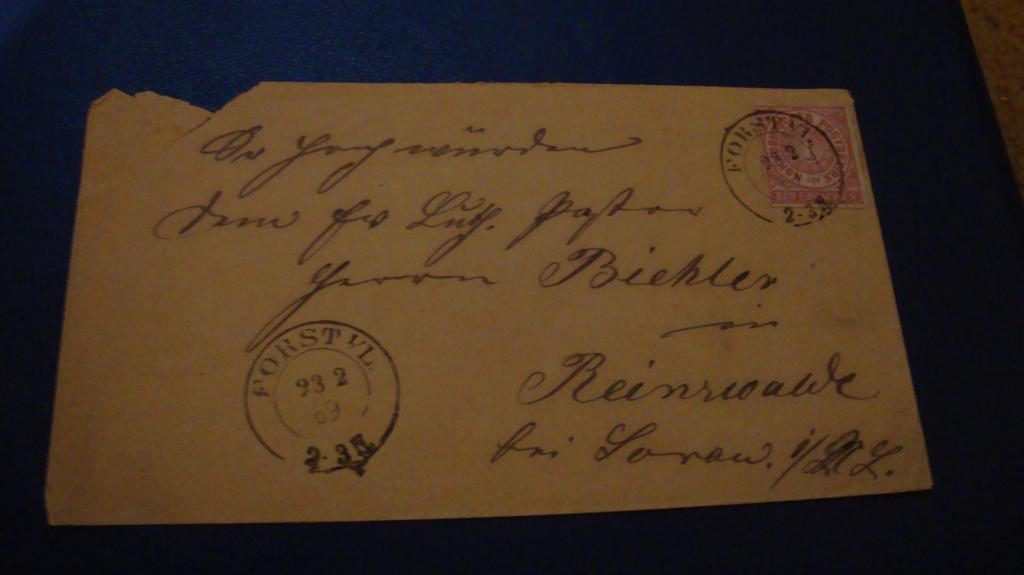 Sr Hochwürden
dem Ev Luth. Pastor
Herrn Biehler
in
Reinswalde
bei Sorau. i/ L.
FORST I/L.
23 2
69
2-3 N
FORST I/L.
23 2
2-3 N